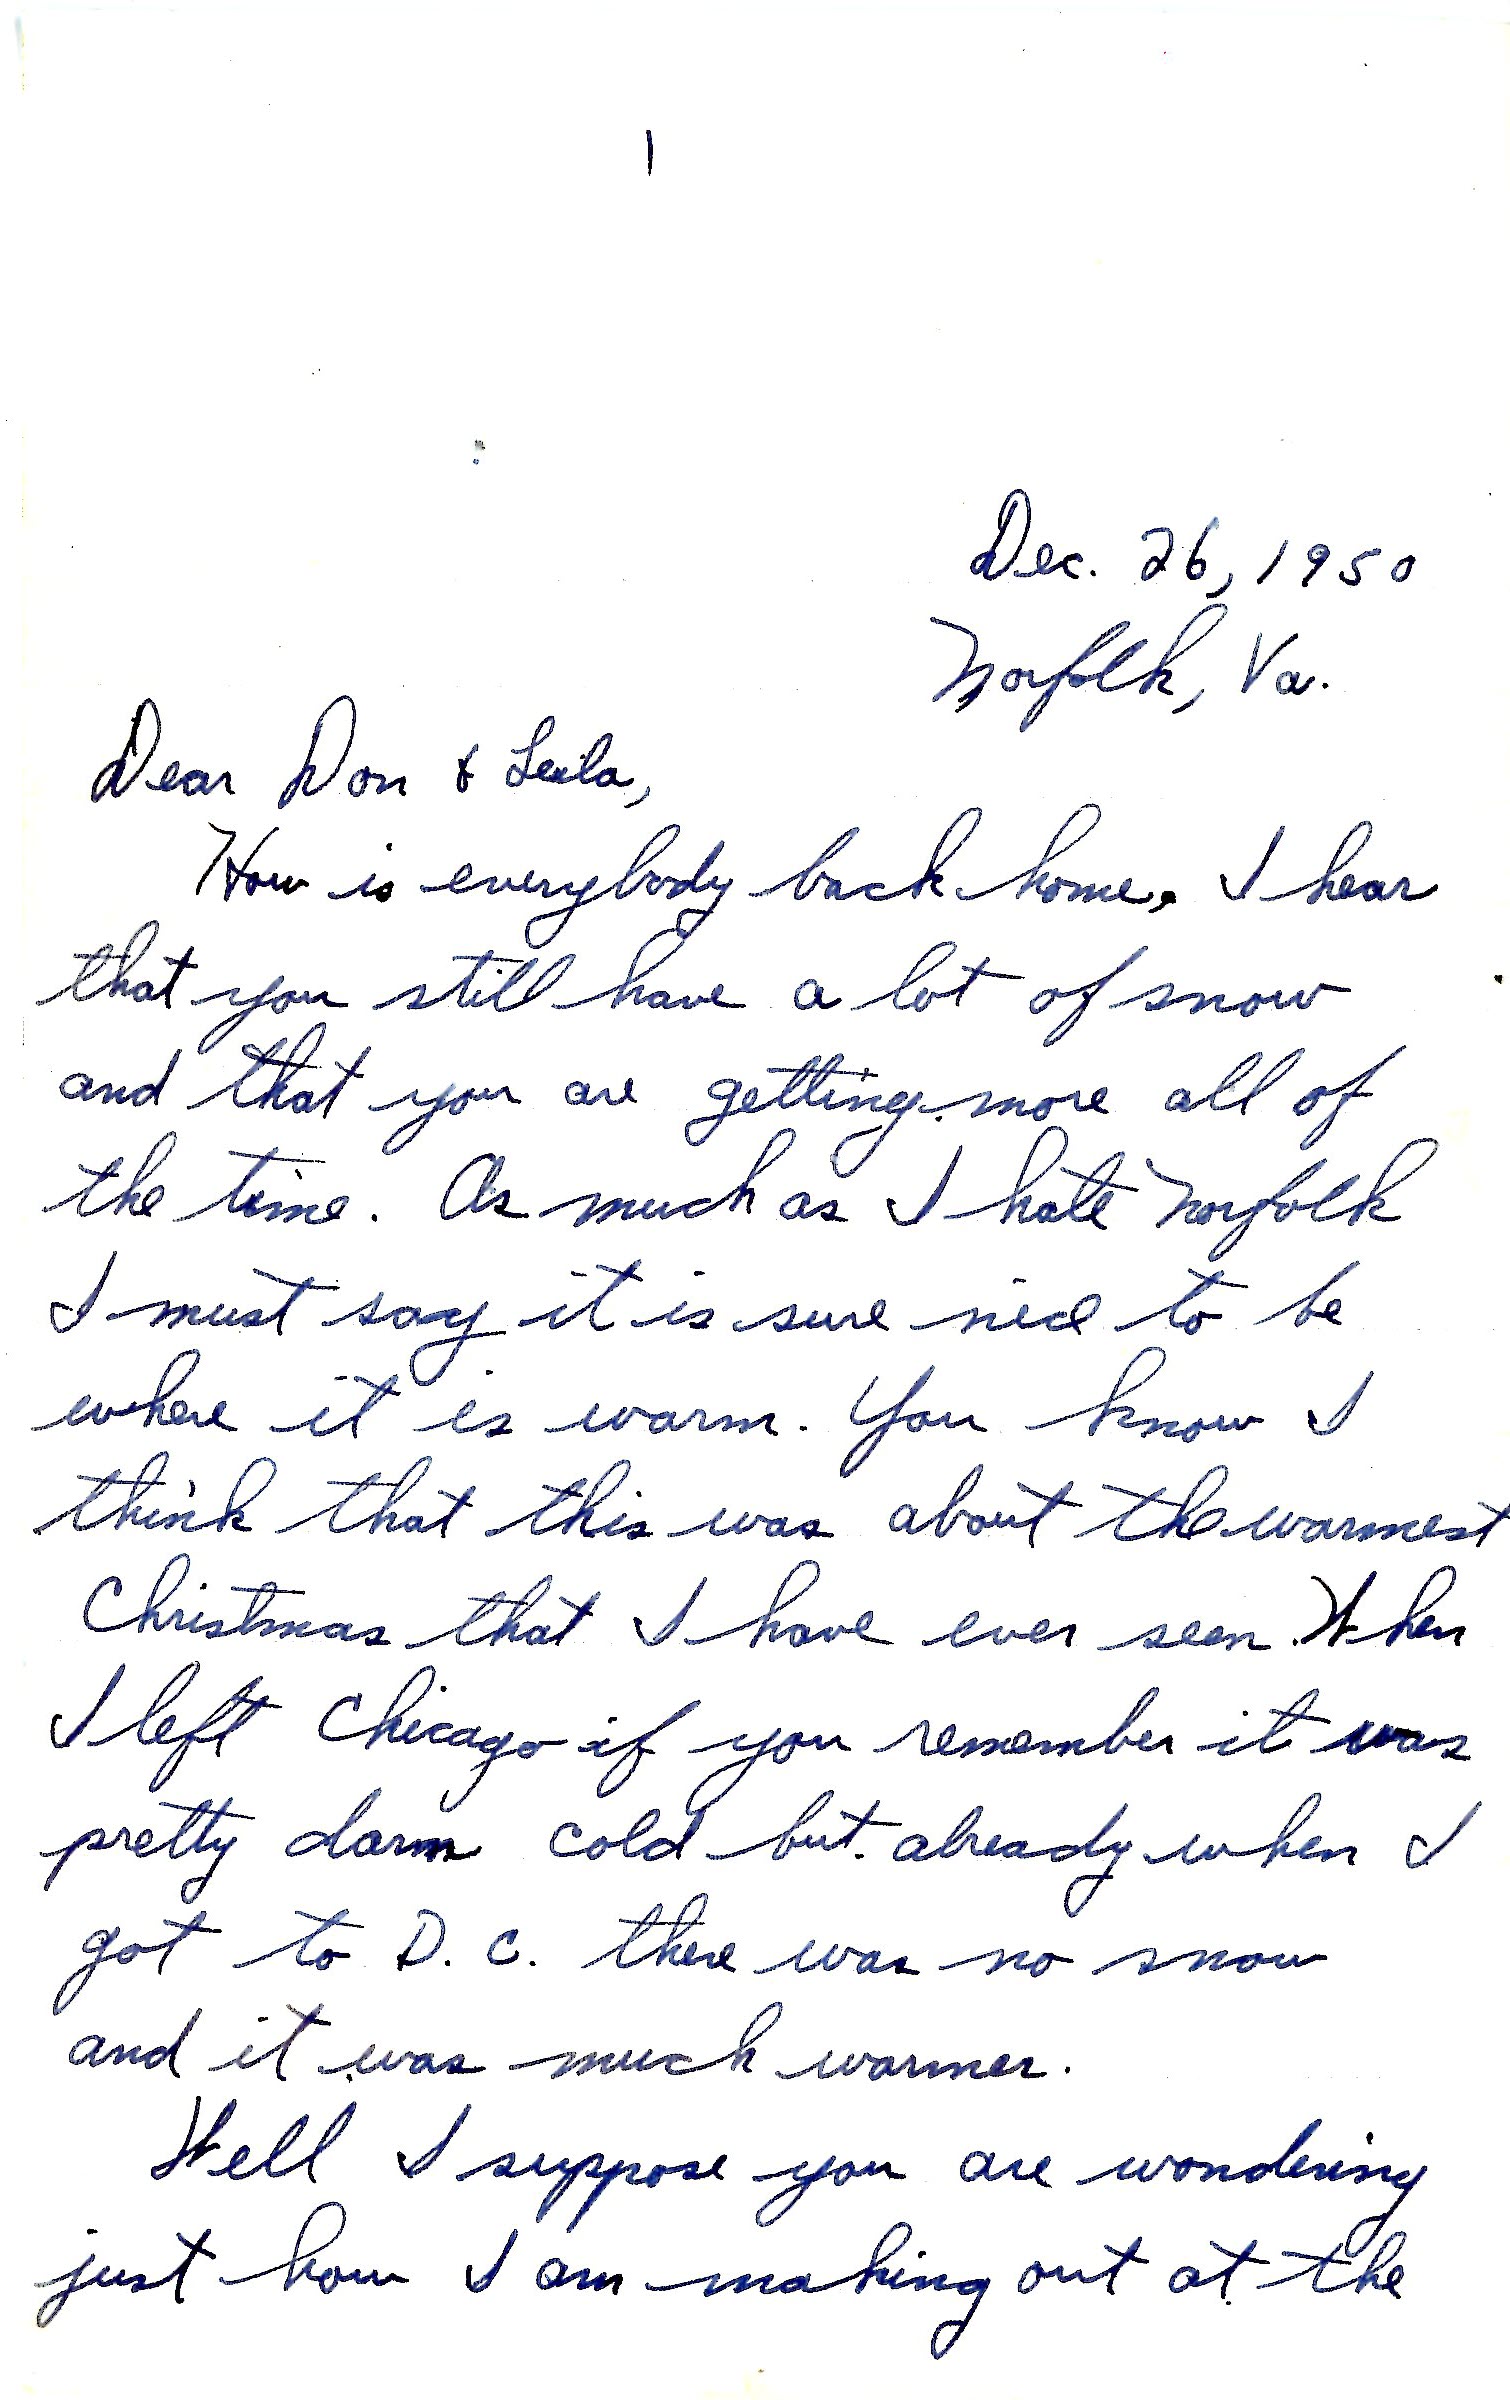 1
Dec. 26, 1950
Norfolk, Va.
Dear Don & Leila,
How is everybody back home. I hear
that you still have a lot of snow
and that you are getting more all of
the time. As much as I hate Norfolk
I must say it is sure nice to be
where it is warm. You know I
think that this was about the warmest
Christmas that I have ever seen. When
I left Chicago if you remember it was
pretty darm cold but already when I
got to D. C. there was no snow
and it was much warmer.
Well I suppose you are wondering
just how I am making out at the